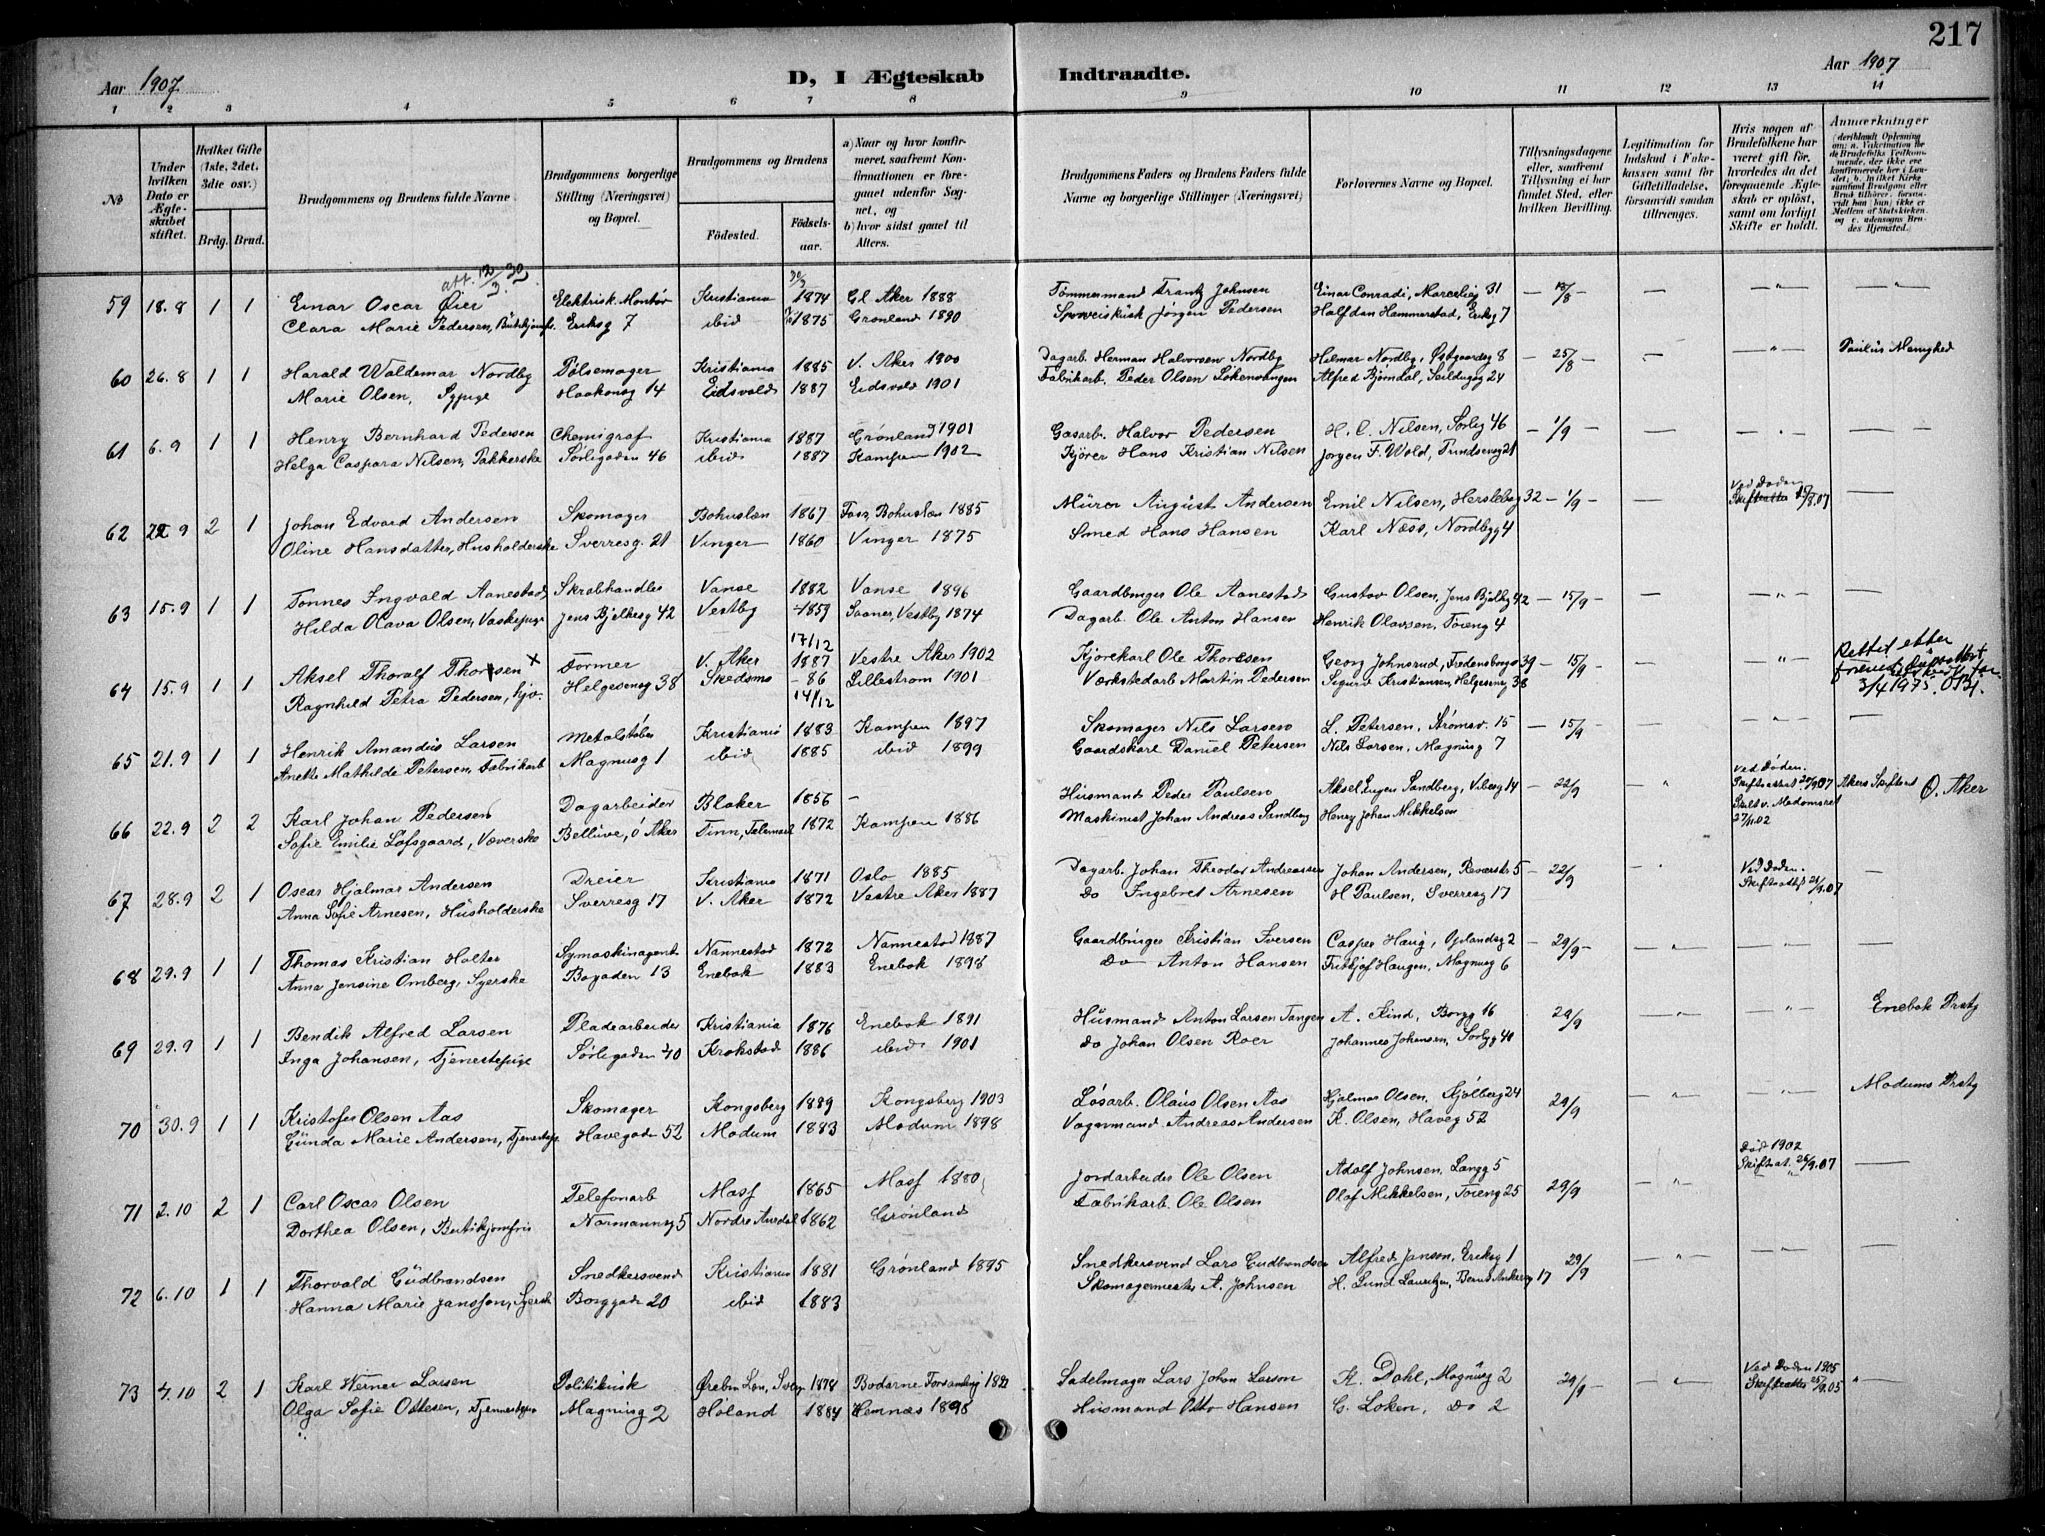 217
Aar 1907.
D, I Ægteskab
Indtraadte.
Aar 1907
1 2 3 4 5 6 7 8 9 10 11 12 13 14
No
Under hvilken Dato er Ægteskabet stiftet.
Hvilket Gifte (1ste, 2det, 3die osv.)
Brdg. Brud.
Brudgommens og Brudens fulde Navne.
Brudgommens borgerlige Stilling (Næringsvei) og Bopæl.
Brudgommens og Brudens
Födested.
Födselsaar.
a) Naar og hvor konfirmeret, saafremt Konfirmationen er foregaaet udenfor Sognet, og
b) hvor sidst gaaet til Alters.
Brudgommens Faders og Brudens Faders fulde Navne og borgerlige Stillinger (Næringsvei)
Forlovernes Navne og Bopæl.
Tillysningsdagene eller, saafremt Tillysning ei har fundet Sted, efter hvilken Bevilling.
Legitimation for Indskud i Enkekassen samt for Giftetilladelse, forsaavidt saadan tiltrænges.
Hvis nogen af Brudefolkene har været gift för, hvorledes da det foregaaende Ægteskab er oplöst, samt om lovligt Skifte er holdt.
Anmærkninger
(deriblandt Oplysning om: a. Vakcination for de Brudefolks Vedkommende, der ikke ere konfirmerede her i Landet, b. i hvilket Kirkesamfund Brudgom eller Brud tilhører, forsaavidt han (hun) ikke er Medlem af Statskirken, og c. udensogns Brudes Hjemsted.)
att. 12/3.30
59 18.8 1 1 Einar Oscar Øier Elektrisk Montør Kristiania 30/3 1874 Gl. Aker 1888 Tömmermand Frantz Johnsen Einar Conradi, Marcelieg 31 — 18/8 — — " — "
Clara Marie Pedersen, Eriksg 7 ibid 1875 Grönland 1890 Jörgen Pedersen Halfdan Hammerstad, Eriksg 7
60 26.8 1 1 Harald Waldemar Nordby Pölsemager Kristiania 1885 V. Aker 1900 Dagarb. Herman Halvorsen Nordby Hilmar Nordby, Østgaardsg 8 — 25/8 — — " — Paulus Menighed
Marie Olsen, Sypige Haakonsg 14 Eidsvold 1887 Eidsvold 1901 Fabrikarb. Peder Olsen Lökensvangen Alfred Bjørndal, Seildugsg 24
61 6.9 1 1 Henry Bernhard Pedersen Chemigraf Kristiania 1887 Grönland 1901 Gasarb. Halvor Pedersen H. C. Nilsen, Sörlig 46 — 1/9 — — " — —
Helga Caspara Nilsen, Pakkerske Sörligaden 46 ibid 1887 Kampen 1902 Kjörer Hans Kristian Nilsen Jørgen F. Wold, Tundsensg 21
62 22.9 2 1 Johan Edvard Andersen Skomager Bohuslæn 1867 Foss, Bohuslæn 1885 Murer August Andersen Emil Nilsen, Herslebsg 32 — 1/9 — ved Døden Skifteattest 15/8.07 —
Oline Hansdatter, Husholderske Sverresg. 21 Vinger 1860 Vinger 1875 Smed Hans Hansen Karl Næss, Nordbyg 4
63 15.9 1 1 Tönnes Ingvald Aanestad Skrabhandler Vanse 1882 Vanse 1896 Gaardbruger Ole Aanestad Gustav Olsen, Jens Bjelkg 42 — 15/9 — — " — —
Hilda Olava Olsen, Vaskepige Jens Bjelkesg 42 Vestby 1859 Saaner, Vestby 1874 Dagarb. Ole Anton Hansen Henrik Olavssen, Töieng 4
64 15.9 1 1 Aksel Thoralf Thorsen × Former V. Aker 17/12 1887 Vestre Aker 1902 Kjørekarl Ole Thoresen Georg Johnsrud, Fredensborgv 39 — 15/9 — — " Rettet etter
Ragnhild Petra Pedersen, Helgesensg 38 Skedsmo - 86 14/12 Lilleström 1901 Værkstedarb Martin Pedersen Sigurd Kristiansen, Helgesensg 38 3/4 1975.
65 21.9 1 1 Henrik Amandus Larsen Metalstöber Kristiania 1883 Kampen 1897 Skomager Nils Larsen L. Petersen, Strömsv. 15 — 15/9 — — " — —
Anette Mathilde Petersen, Fabrikarb Magnusg 1 ibid 1885 ibid 1899 Gaardskarl Daniel Petersen Nils Larsen, Magnusg 7
66 22.9 2 2 Karl Johan Pedersen Dagarbeider Blaker 1856 — Husmand Peder Paulsen Aksel Eugen Sandberg, Vibesg 14 — 22/9 " ved Döden. Akers Skifteret Ø. Aker
Sofie Emilie Löfsgaard, Væverske Bellevue, Ö Aker Tinn, Telemark 1872 Kampen 1886 Maskinist Johan Andreas Sandberg Henry Johan Mikkelsen 27/1.02
67 28.9 2 1 Oscar Hjalmar Andersen Dreier Kristiania 1871 Oslo 1885 Dagarb. Johan Theodor Andreassen Johan Andersen, Reverstr 5 — 22/9 — Ved Döden. Skifteattest 21/9.07 —
Anna Sofie Arnesen, Husholderske Sverresg 17 V. Aker 1872 Vestre Aker 1887 Do Ingebret Arnesen H Paulsen, Sverresg 17
68 29.9 1 1 Thomas Kristian Holter Symaskinagent Nannestad 1872 Nannestad 1887 Gaardbruger Kristian Iversen Casper Haug, Oplandsg 2 — 29/9 — — " — —
Anna Jensine Omberg, Syerske Bogaden 13 Enebak 1883 Enebok 1898 Do — Anton Hansen Frithjof Haugen, Magnusg 6
69 29.9 1 1 Bendik Alfred Larsen Pladearbeider Kristiania 1876 Enebok 1891 Husmand Anton Larsen Tangen A. Kind, Borgg 16 29/9 " — " Enebak Prstg
Inga Johansen, Tjenestepige Sörligaden 40 Krokstad 1886 ibid 1901 do Johan Olsen Roer Johannes Johansen, Sörlig 40
70 30.9 1 1 Kristofer Olsen Aas Skomager Kongsberg 1889 Kongsberg 1903 Løsarb. Olaus Olsen Aas Hjalmar Olsen, Kjölberg 24 29/9 — " — " Modums Prstg
Gunda Marie Andersen, Tjenestepige Havegaden 52 Modum 1883 Modum 1898 Vognmand Andreas Andersen K. Olsen, Haveg 52
71 2.10 2 1 Carl Oscar Olsen Telefonarb Moss 1865 Moss 1880 Jordarbeider Ole Olsen Adolf Johnsen, Langg 5 29/9 — " Död 1902 Skifteat. 26/9.07 —
Dorthea Olsen, Butikjomfru Normannsg 5 Nordre Aurdal 1862 Grönland Fabrikarb. Ole Olsen Olaf Mikkelsen, Töieng 25
72 6.10 1 1 Thorvald Gudbrandsen Snedkersvend Kristiania 1881 Grönland 1895 Snedkersvend Lars Gudbrandsen Alfred Janson, Eriksg 1 29/9 — " — " —
Hanna Marie Jansson, Syersk Borggaden 20 ibid 1883 Skomagermester A. Johnsen H. Lund Lauritzen, Bernt Ankersg 17
73 4.10 2 1 Karl Werner Larsen Politikusk Ørebro Læn, Sverg 1878 Bodarne Forsamling Sadelmager Lars Johan Larson K. Dahl, Magnusg 2 29/9 — " Ved Döden 1905 Skifteattest 25/9.05 " —
Olga Sofie Ottesen, Tjenestepige Magnusg 2 Höland 1884 Hemnæs 1898 Husmand Otto Hansen G. Löken, Do 2